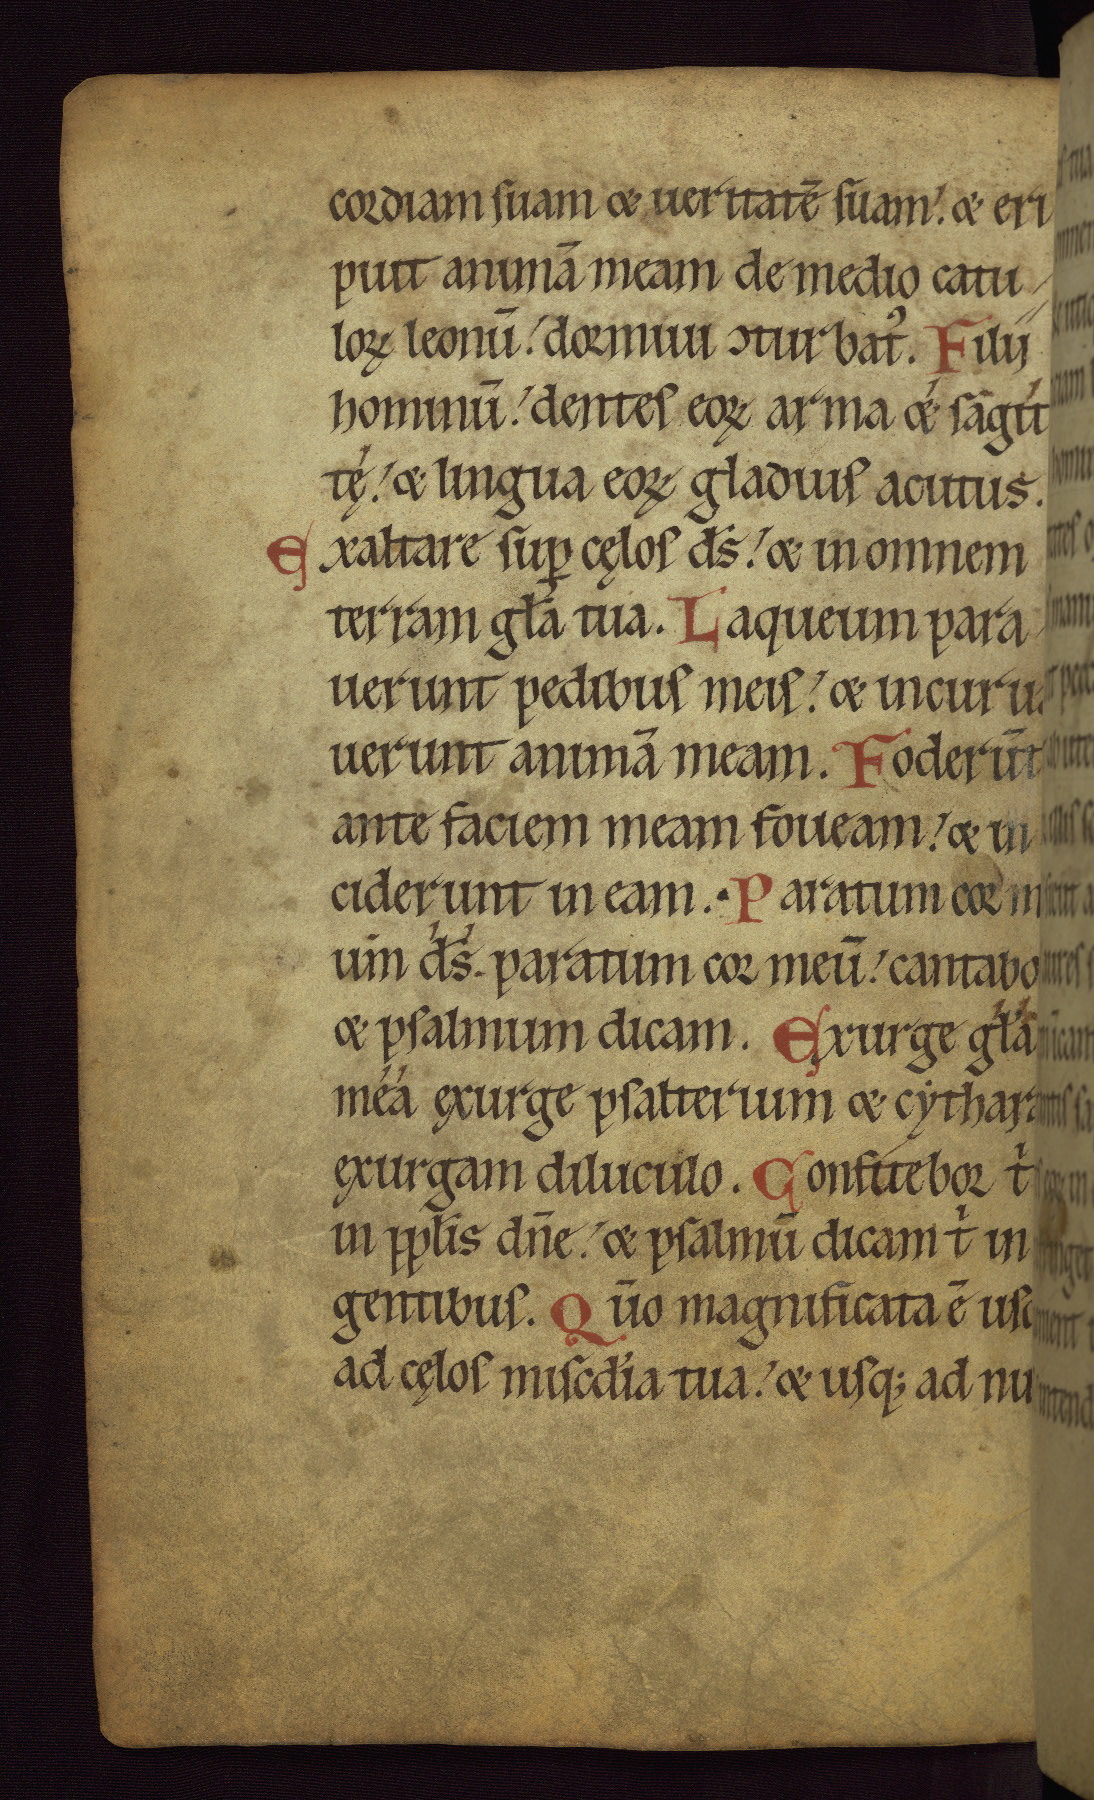 cordiam suam & ueritatē suam. & eri
puit animā meam de medio catu
loꝝ leonū. dormiui ɔturbat᷒. Filij
hominū. dentes eoꝝ arma & sāgit
tę. & lingua eoꝝ gladius acutus.
Exaltare suꝑ cęlos ds̄. & in omnem
terram gl̄a tua. Laqueum para
uerunt pedibus meis. & incurua
uerunt animā meam. Foderūt
ante faciem meam foueam. & in
ciderunt in eam. Paratum cor m
um ds̄. paratum cor meū. cantabo
& psalmum dicam. Exurge gl̄a
mea exurge psalterium & cythara
exurgam diluculo. Confitebor t̄
in ppl̄is dn̄e. & psalmū dicam t̄ in
gentibus. Qūo magnificata ē usq
ad cęlos misc̄dia tua. & usq; ad nu